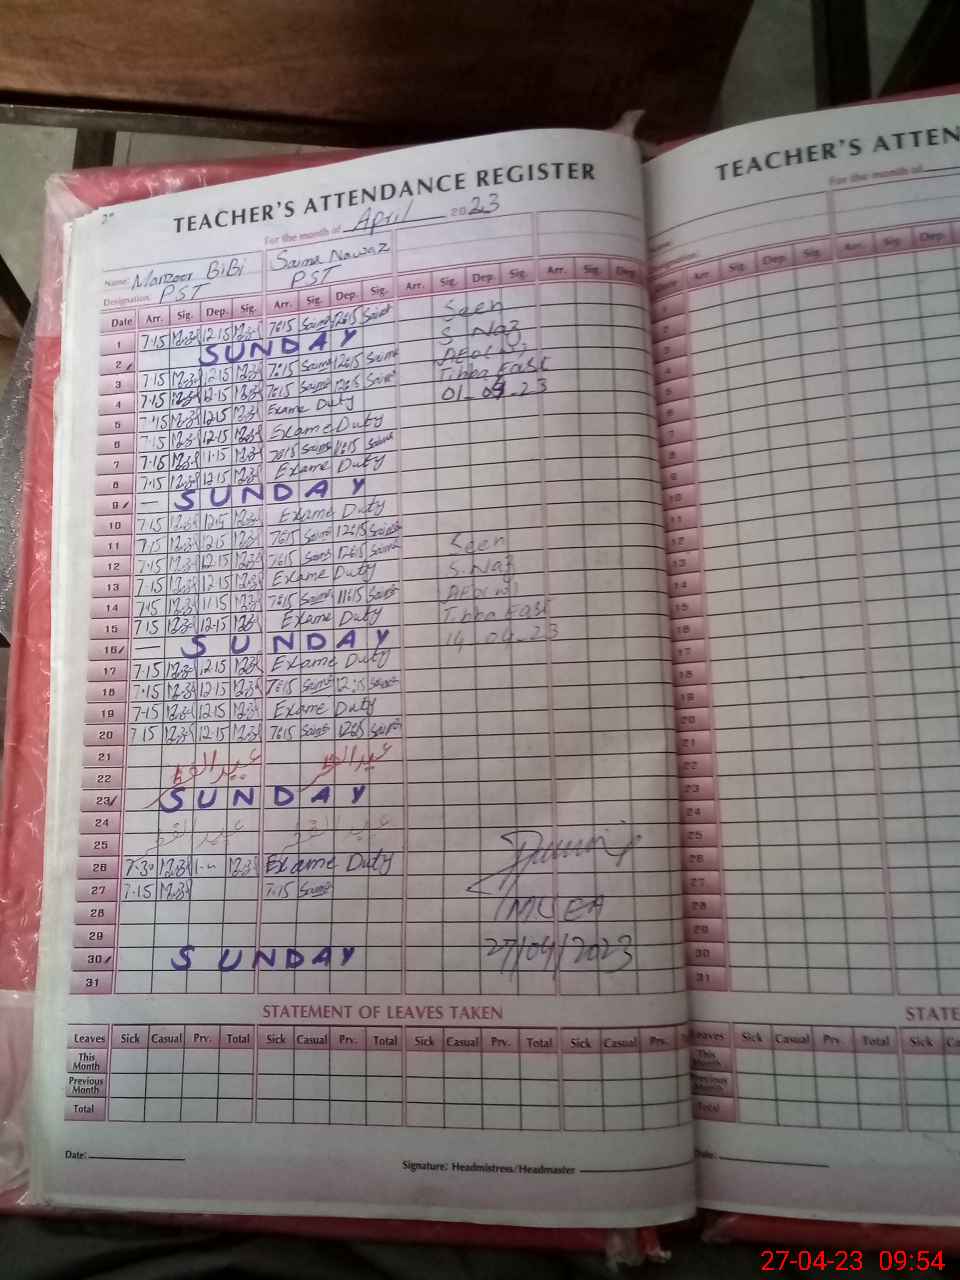 TEACHER'S ATTENDANCE REGISTER
For the month of April 2023
Name: Manzoor BiBi Saima Nawaz
Designation: PST PST
Date Arr. Sig. Dep. Sig. Arr. Sig. Dep. Sig. Arr. Sig. Dep. Sig. Arr. Sig. Dep.
1 7.15 12.15 7:15 Saima 12:15 Saima Seen
2 SUNDAY S. Naz
3 7.15 12.15 7:15 Saima 12:15 Saima AEO
4 7.15 12.15 7:15 Saima 12:15 Saima Tibba East
5 7.15 12.15 Exame Duty 01-04-23
6 7.15 12.15 Exame Duty
7 7.15 11.15 7:15 Saima 11:15 Saima
8 7.15 12.15 Exame Duty
9 — SUNDAY
10 7.15 12.15 Exame Duty
11 7.15 12.15 7:15 Saima 12:15 Saima Seen
12 7.15 12.15 7:15 Saima 12:15 Saima S. Naz
13 7.15 12.15 Exame Duty AEO
14 7.15 11.15 7:15 Saima 11:15 Saima Tibba East
15 7.15 12.15 Exame Duty 14-04-23
16 — SUNDAY
17 7.15 12.15 Exame Duty
18 7.15 12.15 7:15 Saima 12:15 Saima
19 7.15 12.15 Exame Duty
20 7.15 12.15 7:15 Saima 12:15 Saima
21
22 عید الفطر عید الفطر
23 SUNDAY
24
25 عید الفطر عید الفطر
26 7.30 Exame Duty
27 7.15 7.15 Saima
28 MEA
29
30 SUNDAY 27/04/2023
31
STATEMENT OF LEAVES TAKEN
Leaves Sick Casual Prv. Total Sick Casual Prv. Total Sick Casual Prv. Total Sick Casual Prv.
This Month
Previous Month
Total
Date:
Signature: Headmistress/Headmaster
TEACHER'S ATTEN
For the month of
Arr. Sig. Dep. Sig. Arr. Sig. Dep.
1
2
3
4
5
6
7
8
9
10
11
12
13
14
15
16
17
18
19
20
21
22
23
24
25
26
27
28
29
30
31
STATE
Leaves Sick Casual Prv. Total Sick
This Month
Previous Month
Total
Date:
27-04-23 09:54